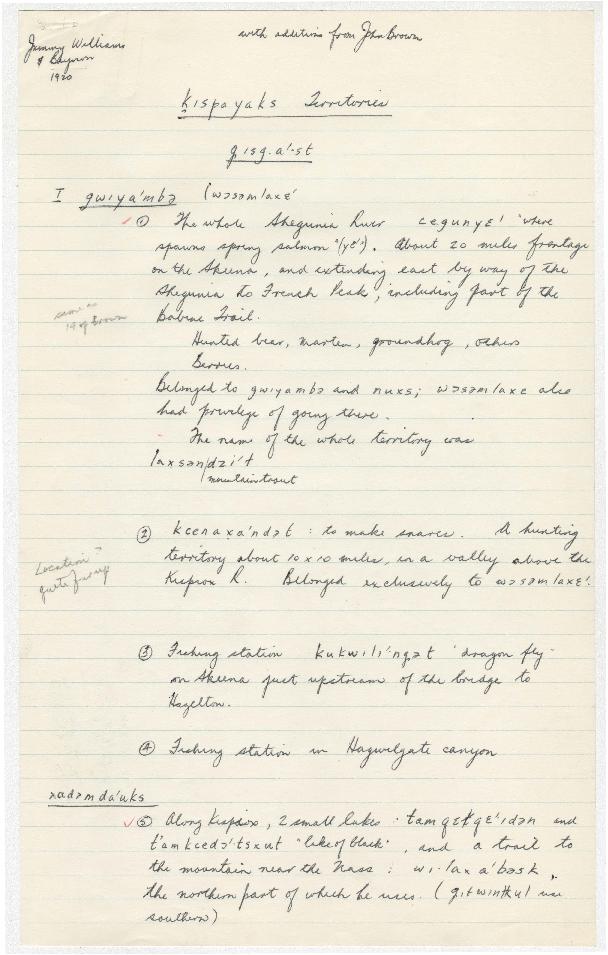 with additions from John Brown
Jimmy Williams
& Beynon
1920
Kispayaks Territories
gisg.a'-st
I gwiya'mbə (wəsəmlaxɛ'
① The whole Shegunia River cegunyɛ' "where
spawns spring salmon" (yɛ'). About 20 miles frontage
on the Skeena, and extending east by way of the
Shegunia to French Peak, including part of the
Babine Trail.
same as
19 of Brown
Hunted bear, marten, groundhog, others
Berries.
Belonged to gwiyambə and nuxs; wəsəmlaxɛ also
had privilege of going there.
The name of the whole territory was
laxsən/dzi't
mountain trout
② kceenaxa'ndət : to make snares. A hunting
territory about 10 x 10 miles, in a valley above the
Kispiox R. Belonged exclusively to wəsəmlaxɛ'.
Location ?
quite far up
③ Fishing station kukwili'ngət 'dragon fly'
on Skeena just upstream of the bridge to
Hazelton.
④ Fishing station in Hagwilgate canyon
xadəmda'uks
⑤ Along Kispiox, 2 small lakes : tamqɛɬqɛ'idən and
t'amkcedə'tsxut "lake of black", and a trail to
the mountain near the Nass : wi·lax a'bəsk,
the northern part of which he uses. (gitwinɬkul use
southern)